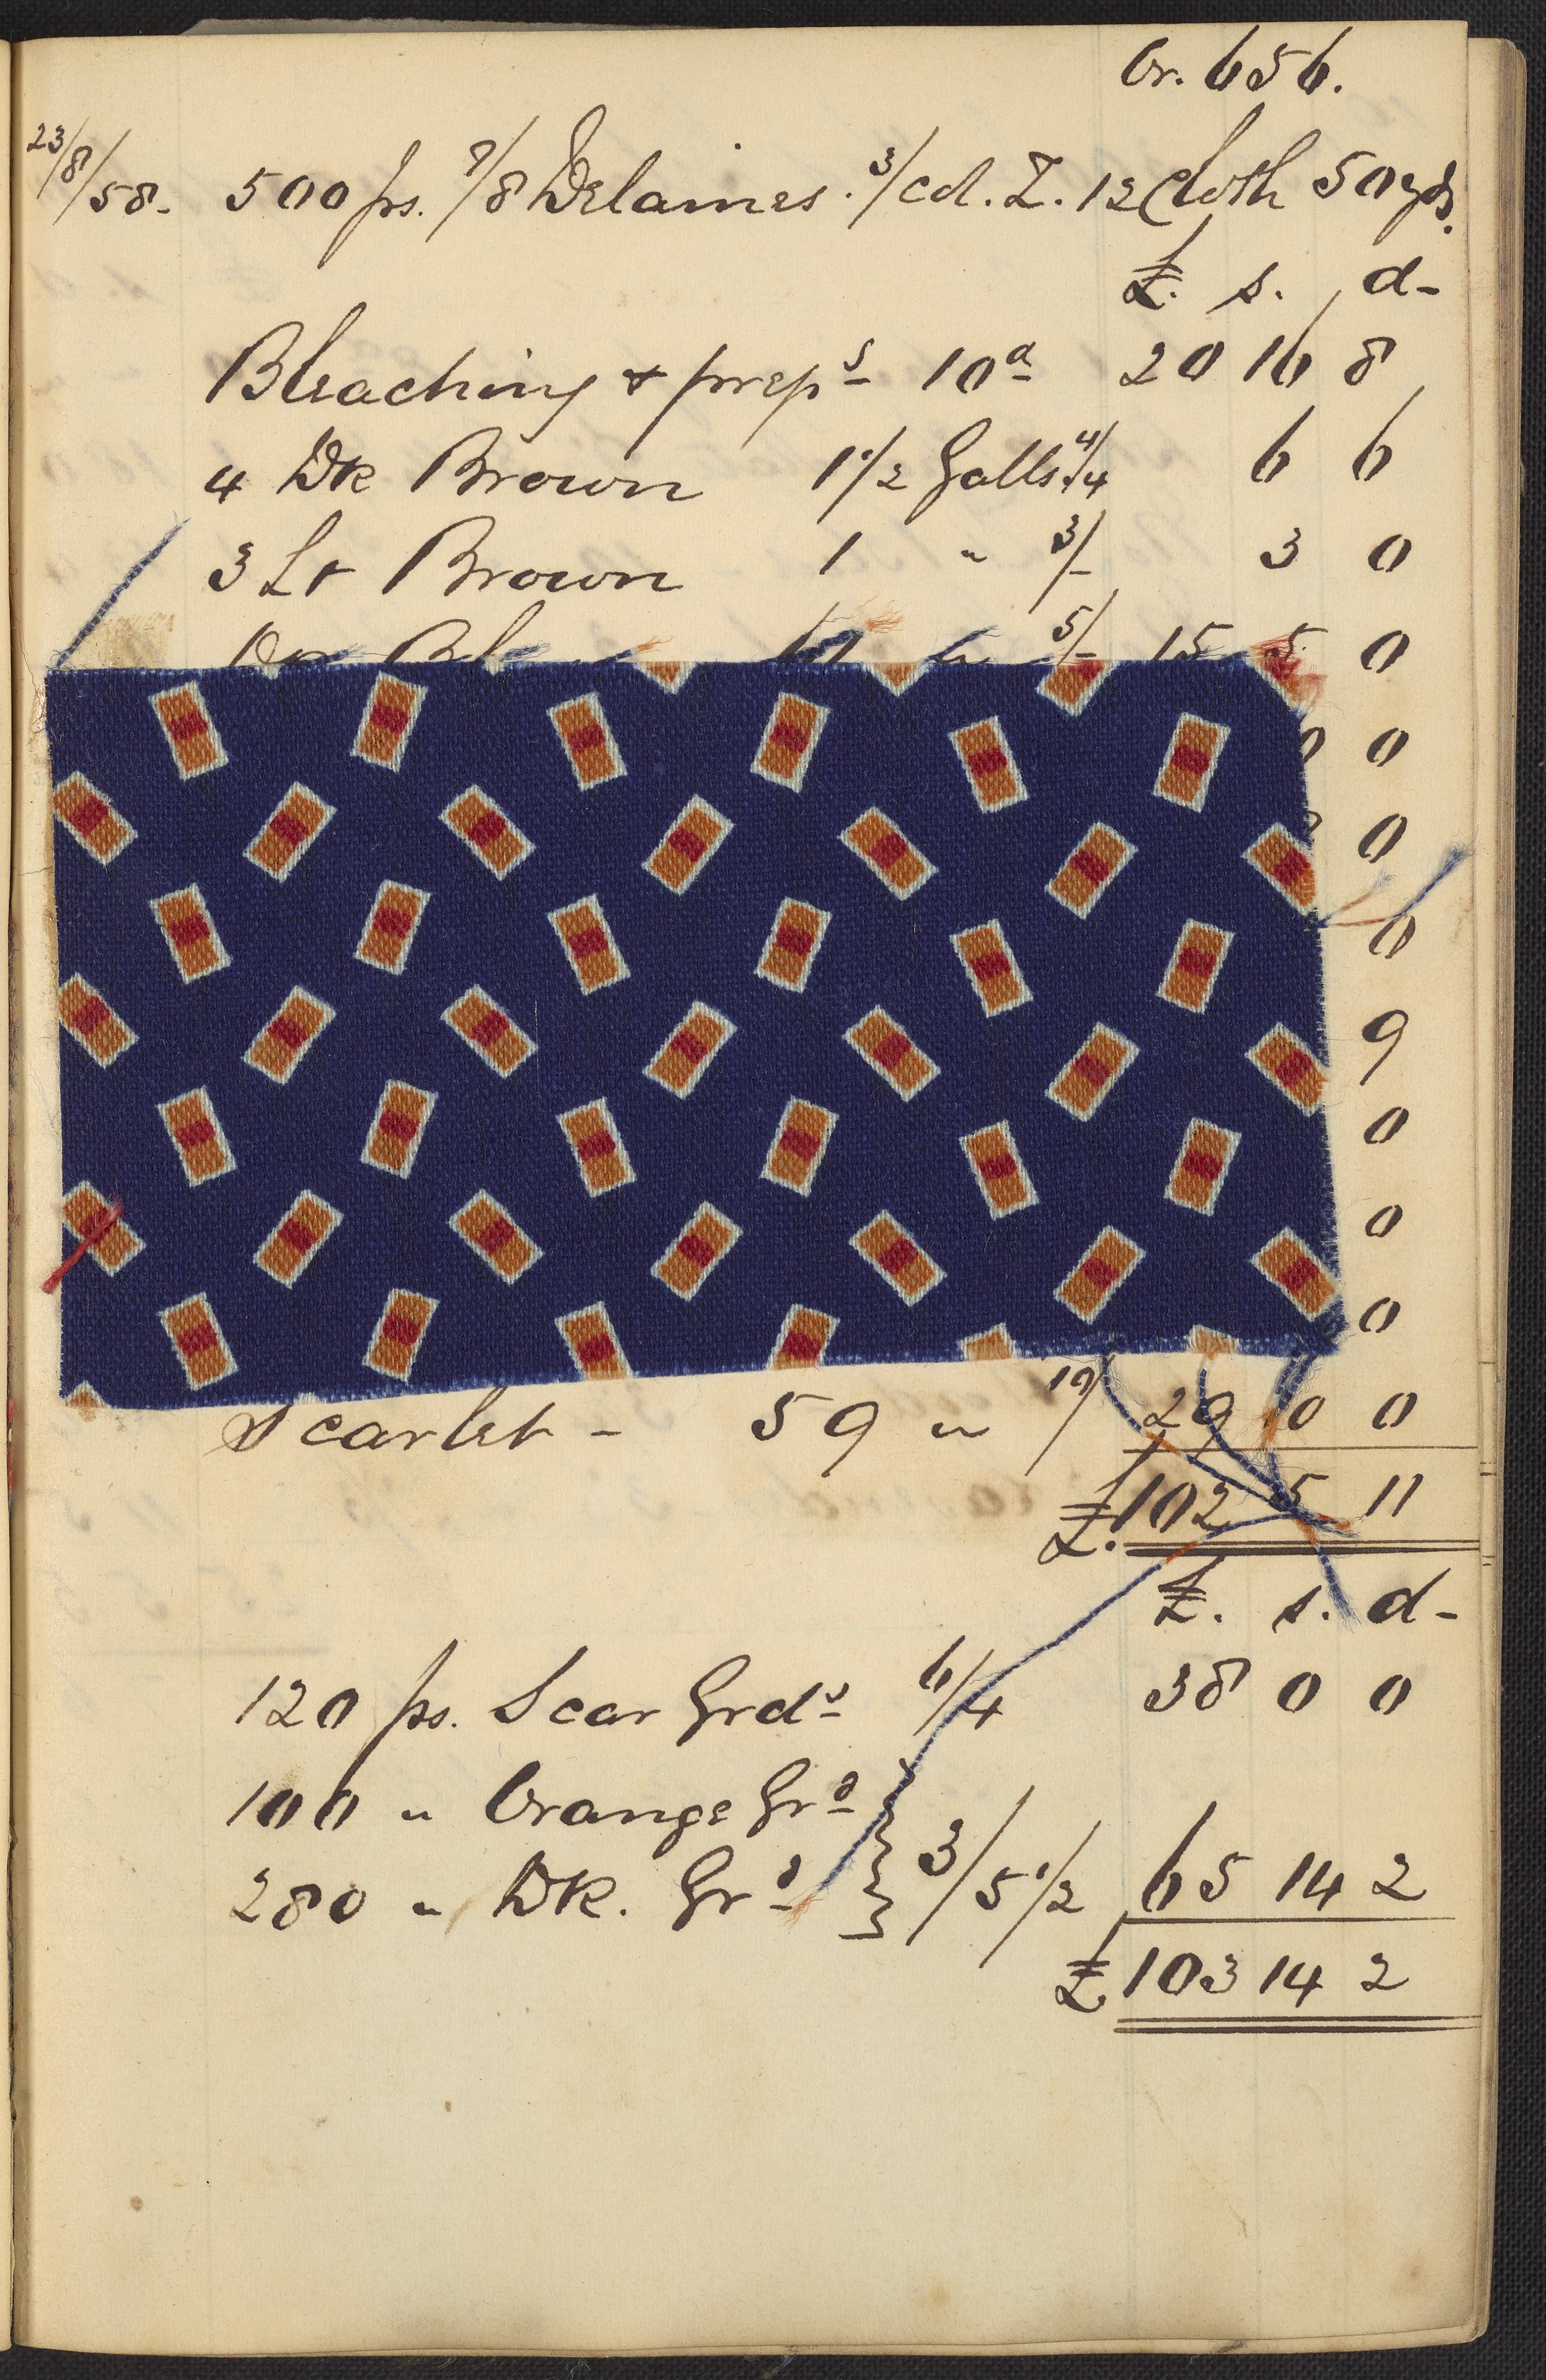 Or. 656.
23/8/58. 500 ps. 7/8 Delaines. 3/cd. Z. 12 Cloth 50 yds.
£. s. d-
Bleaching & prepg 10d 20 16 8
4 Dk Brown 1 1/2 Galls. 4/4 6 6
3 Lt Brown 1 " 3/- 3 0
5/- 15 5 0
0
0
0
9
0
0
0
Scarlet - 59 " 29 0 0
£. 102 5 11
£. s. d-
120 ps. Scar Grds 6/4 38 0 0
100 " Orange Grd
280 " Dk. Grd } 3/5 1/2 65 14 2
£ 103 14 2